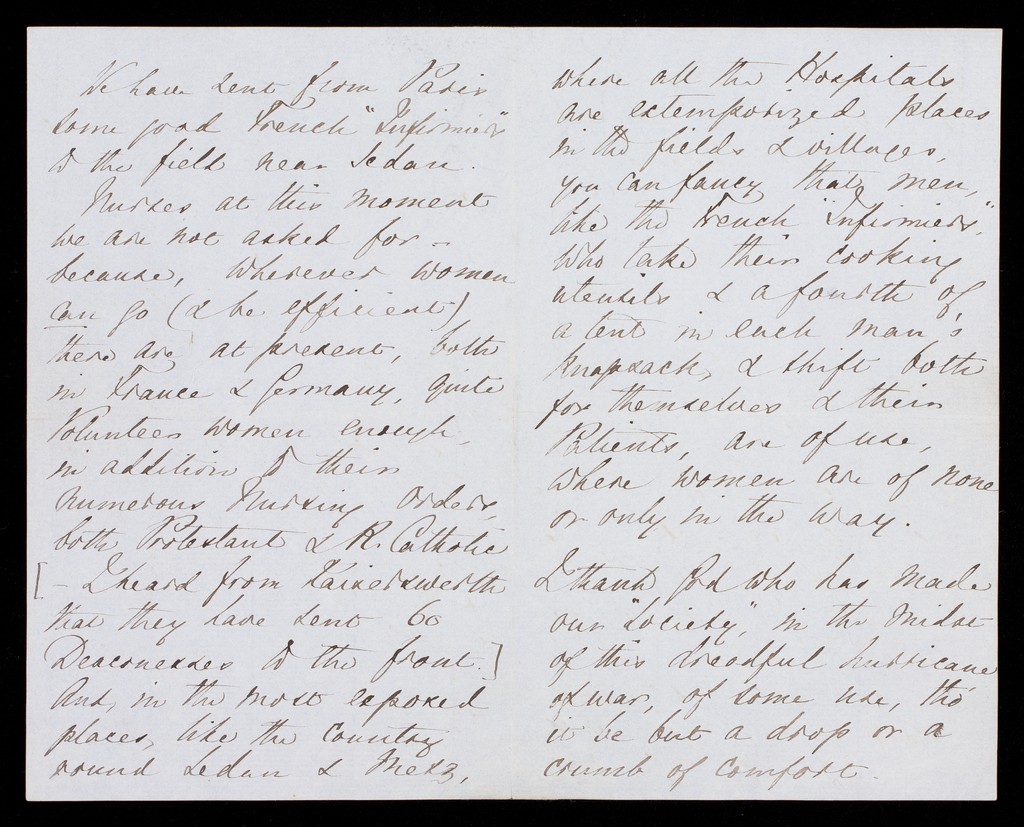 We have sent from Paris
some good French "Infirmiers"
to the field near Sedan.
Nurses at this moment
we are not asked for -
because, wherever women
can go (& be efficient)
there are, at present, both
in France & Germany, quite
Volunteer women enough,
in addition to their
numerous Nursing Orders,
both Protestant & R. Catholic
[- I heard from Kaiserswerth
that they have sent 60
Deaconesses to the front.]
And, in the most exposed
places, like the country
round Sedan & Metz,
where all the Hospitals
are extemporized places
in the fields & villages,
you can fancy that men,
like the French "Infirmiers",
who take their cooking
utensils & a fourth of
a tent in each man's
knapsack, & shift both
for themselves & their
Patients, are of use,
where women are of none
or only in the way.
I thank God who has made
our "Society", in the midst
of this dreadful hurricane
of war, of some use, tho'
it be but a drop or a
crumb of comfort.